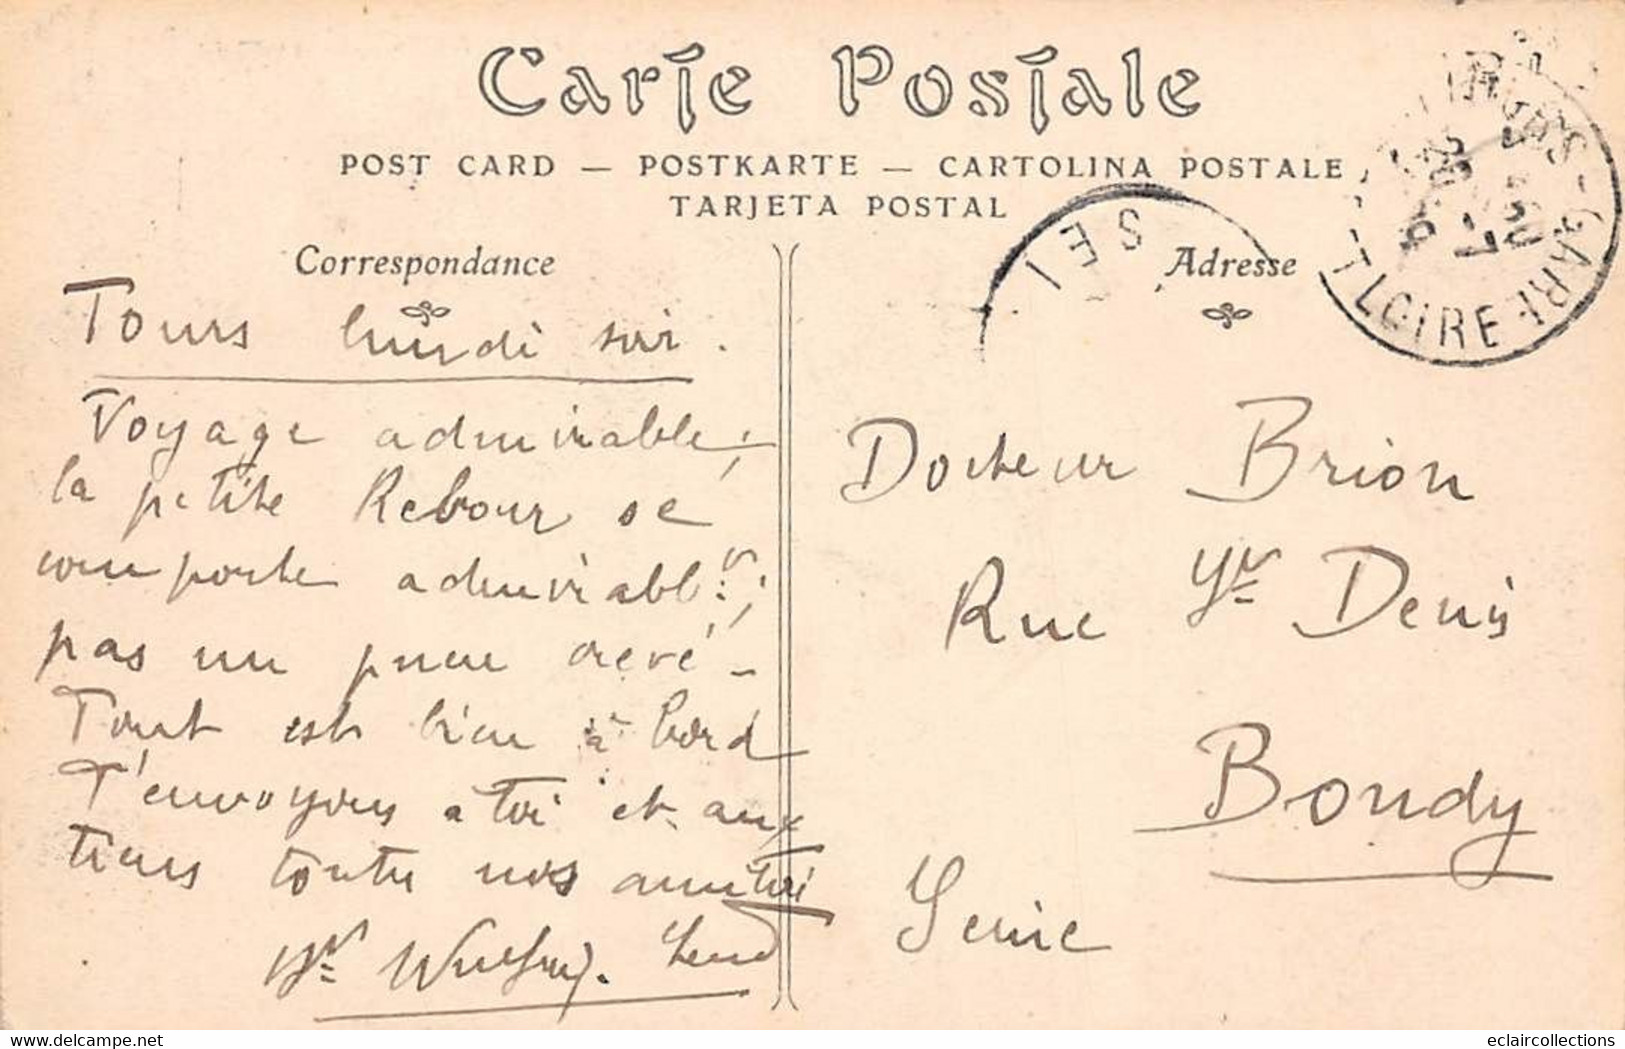 Carte Postale
POST CARD — POSTKARTE — CARTOLINA POSTALE
TARJETA POSTAL
Correspondance
Adresse
SEI
GARE
T LOIRE
Tours lundi soir.
Voyage admirable;
la petite Rebour se
comporte admirabl.t;
pas un pneu crevé –
Tout est bien à bord
T'envoyons à toi et aux
tiens toutes nos amitiés
Docteur Brion
Rue St Denis
Bondy
Seine
eclaircollections